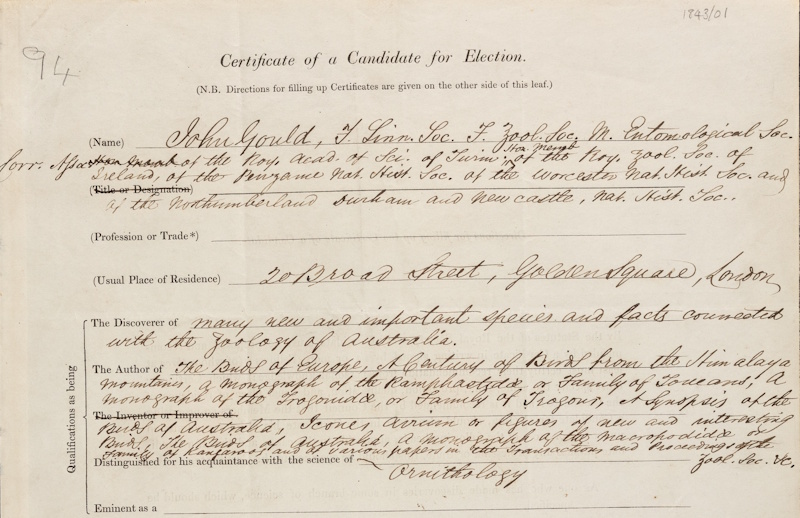 1843/01
94
Certificate of a Candidate for Election.
(N.B. Directions for filling up Certificates are given on the other side of this leaf.)
(Name) John Gould, F. Linn. Soc. F. Zool. Soc. M. Entomological Soc.
Hon. Memb.
Corr. Assoc. of the Roy. Acad. of Sci. of Turin; of the Roy. Zool. Soc. of
Ireland, of the Penzance Nat. Hist. Soc. of the Worcester Nat. Hist Soc. and
(Title or Designation)
of the Northumberland Durham and Newcastle, Nat. Hist. Soc..
(Profession or Trade*)
(Usual Place of Residence) 20 Broad Street, Golden Square, London
Qualifications as being
The Discoverer of many new and important species and facts connected
with the Zoology of Australia.
The Author of The Birds of Europe, A Century of Birds from the Himalaya
mountains, a monograph of the Ramphastidae, or Family of Toucans; A
monograph of the Trogonidae, or Family of Trogons, A Synopsis of the
The Inventor or Improver of
Birds of Australia, Icones avium or figures of new and interesting
Birds, The Birds of Australia, A monograph of the Macropodidae or
Family of Kangaroos and of various papers in the Transactions and Proceedings of the
Zool. Soc. &c.
Distinguished for his acquaintance with the science of
Ornithology
Eminent as a